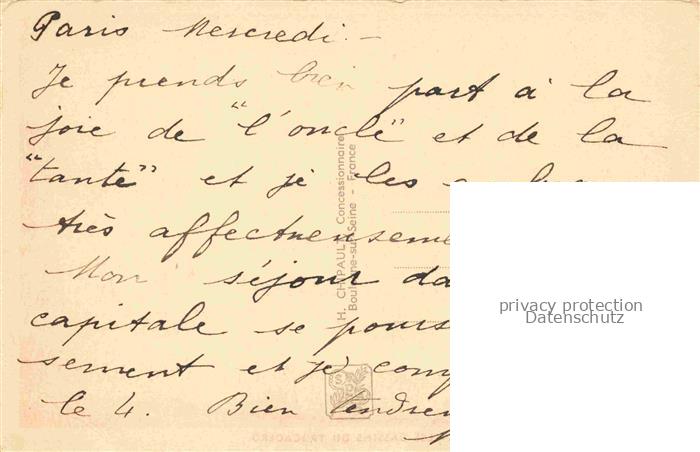 Paris Mercredi. –
Je prends bien part à la
joie de "l'oncle" et de la
"tante" et je les
très affectueuseme
Mon séjour da
capitale se pours
sement et je comp
le 4. Bien tendre
H. CHIPAULT Concessionnaire
Boulogne-sur-Seine - France
privacy protection
Datenschutz
BASSINS DU TROCADERO